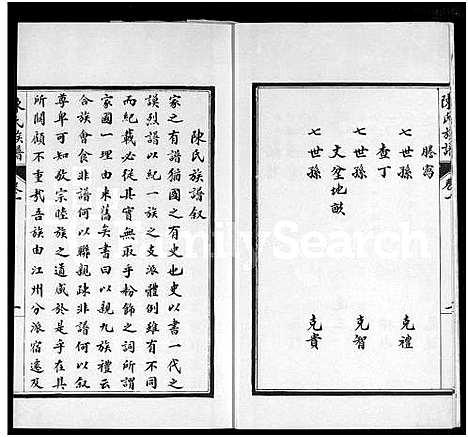 陳氏族譜 卷一
一
謄寫
七世孫 克禮
查丁
七世孫 克智
文塋地畝
七世孫 克貴
陳氏族譜敘
家之有譜猶國之有史也史以書一代之
謨烈譜以紀一族之支派體例雖有不同
而紀載必從其實無取乎粉飾之詞所謂
家國一理由來舊矣書曰以親九族禮云
合族會食非譜何以聯親疎非譜何以敘
尊卑可知敬宗睦族之道咸於是乎在其
所關顧不重哉吾族由江州分派宿遠及
陳氏族譜 卷一
一
FamilySearch